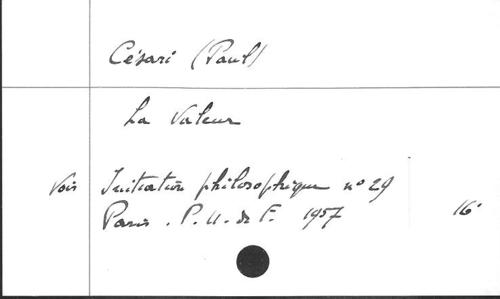 Césari (Paul)
La Valeur
Voir Initiation philosophique nº 29
Paris. P. U. de F. 1957 16º